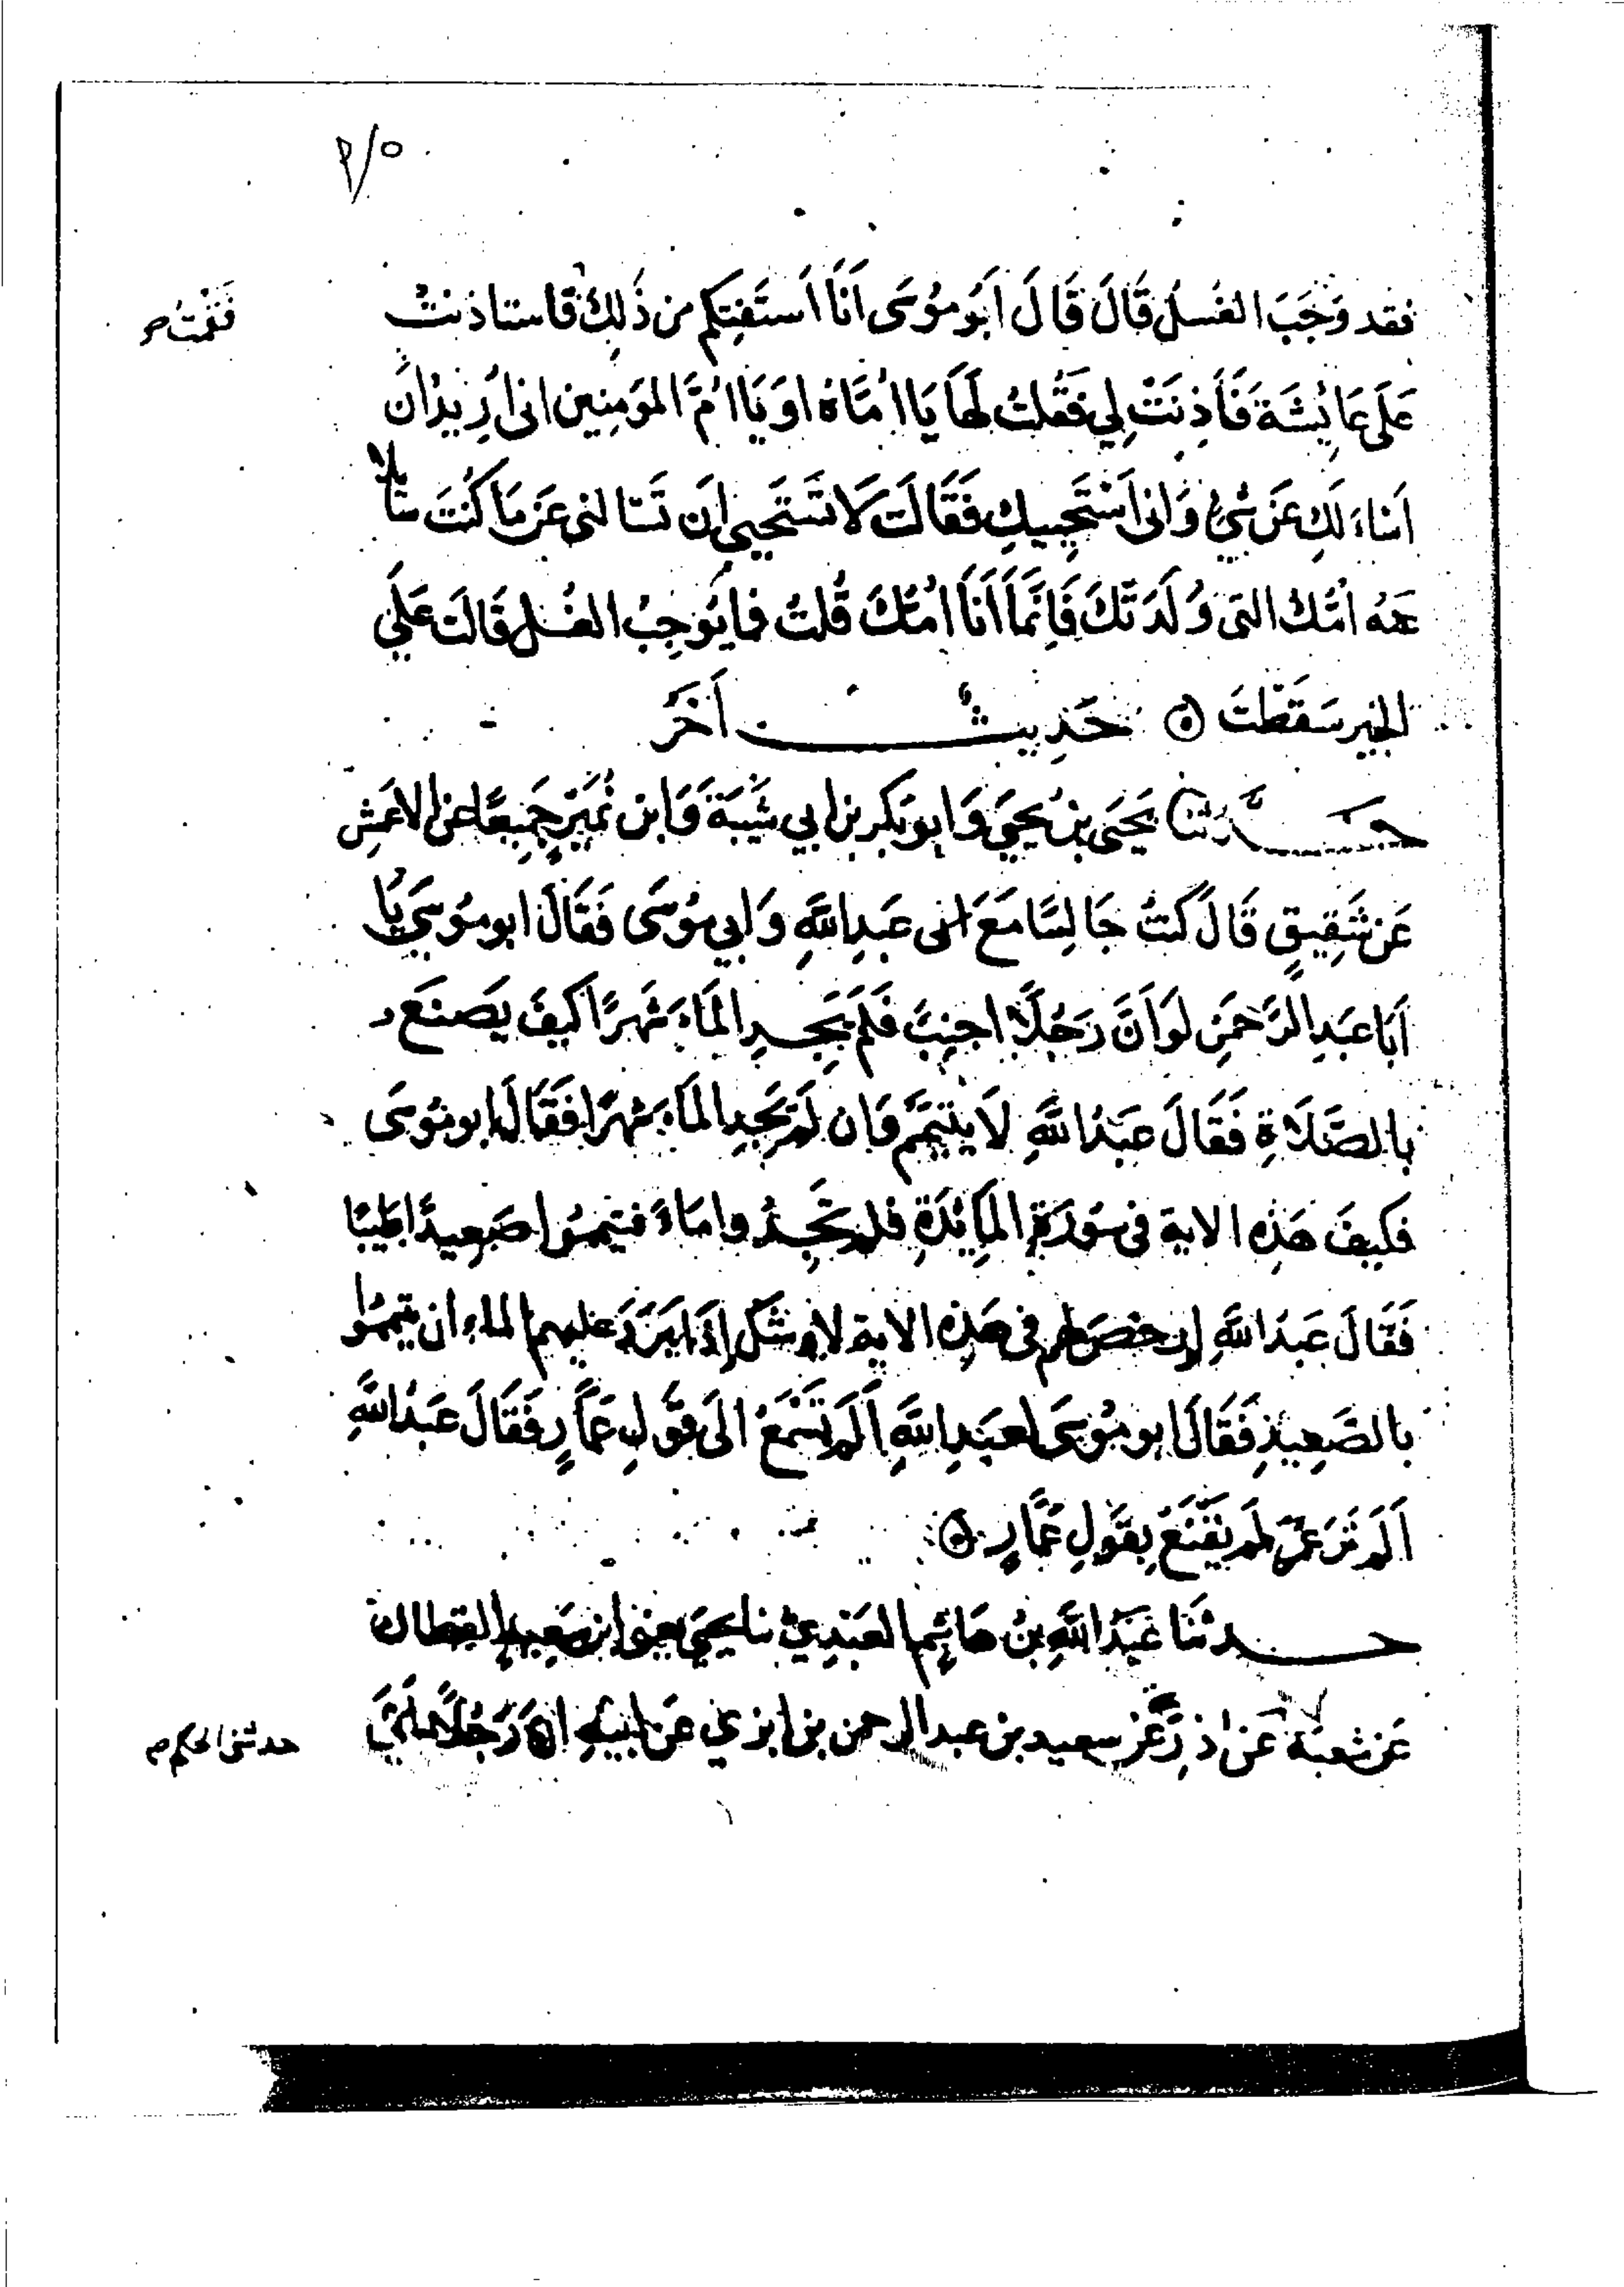 فقد وَجَبَ الغسلُ قَالَ قَالَ اَبُو مُوسَى اَنَا اَستَفتِكم من ذَلِكَ فاستاذنتْ
فَقُمْتُ صح
عَلَى عَايِشَةَ فَأَذِنَتْ لِي فَقُلتُ لَهَا يَا اُمَّاهُ اَو يَا اُمَّ المؤمِنِين انى اُرِيدُ اَن
اَساءَلكِ عَن شَيْءٍ وَانى اَسْتَحِييكِ فَقَالَت لَا تَستَحيى اَن تَسَالنى عَن مَا كُنتَ سَايلا
عنهُ اُمّك التى وَلَدَتكَ فَاِنَّمَا اَنَا اُمّكَ قُلتُ فما يُوجِبُ الغُسل قَالَت عَلَى
الخبير سَقَطتَ ۞ حَدِيثٌ اَخَر
حدثنا يَحيَى بن يَحيَى وَابو بَكر بن ابي شَيبَةَ وَابن نُمَيرٍ جَمِيعًا عن الاعمَشِ
عَن شَقِيقٍ قَالَ كنتُ جَالِسًا مَعَ عَبدِ اللَّهِ وَابي مُوسَى فَقَالَ ابو مُوسَى يَا
اَبَا عَبدِ الرَّحمَنِ لَو اَنَّ رَجُلًا اجنِبَ فَلَم يَجِدِ المَاءَ شَهرًا كَيفَ يَصنَع
بالصَّلَاةِ فَقَالَ عَبدُ اللَّهِ لَا يتيَمَّم وَان لَم يَجِدِ المَاءَ شَهرًا فَقَالَ ابو مُوسَى
فكيفَ هَذِهِ الاية فى سُورَةِ المَايِدَةِ فلم تَجِدُوا مَاءً فتيمموا صَعِيدًا طَيبًا
فَقَالَ عَبدُ اللَّهِ اِن رخص لهم فى هَذِهِ الاية لاوشَكَ اِذَا بَرَدَ عليهم الماء ان يتيمموا
بالصَّعِيدِ فَقَالَ ابو مُوسَى لعَبدِ اللَّهِ اَلَم تَسمَعْ الَى قَولِ عَمَّارٍ فَقَالَ عَبدُ اللَّهِ
اَلَم تَرَ عمَرَ لَم يَقْنَعْ بِقَولِ عَمَّارٍ ۞
حدثنَا عَبدُ اللَّهِ بنُ هَاشِم العَبدِيّ نا يحيَى يعنى ابن سَعِيدٍ القطان
عَن شعبَة عَن ذَرٍّ عَن سعيد بن عبد الرحمن بن ابزي عَن ابيهِ انَّ رَجُلًا اَتَى
حدثنى الحكم صح